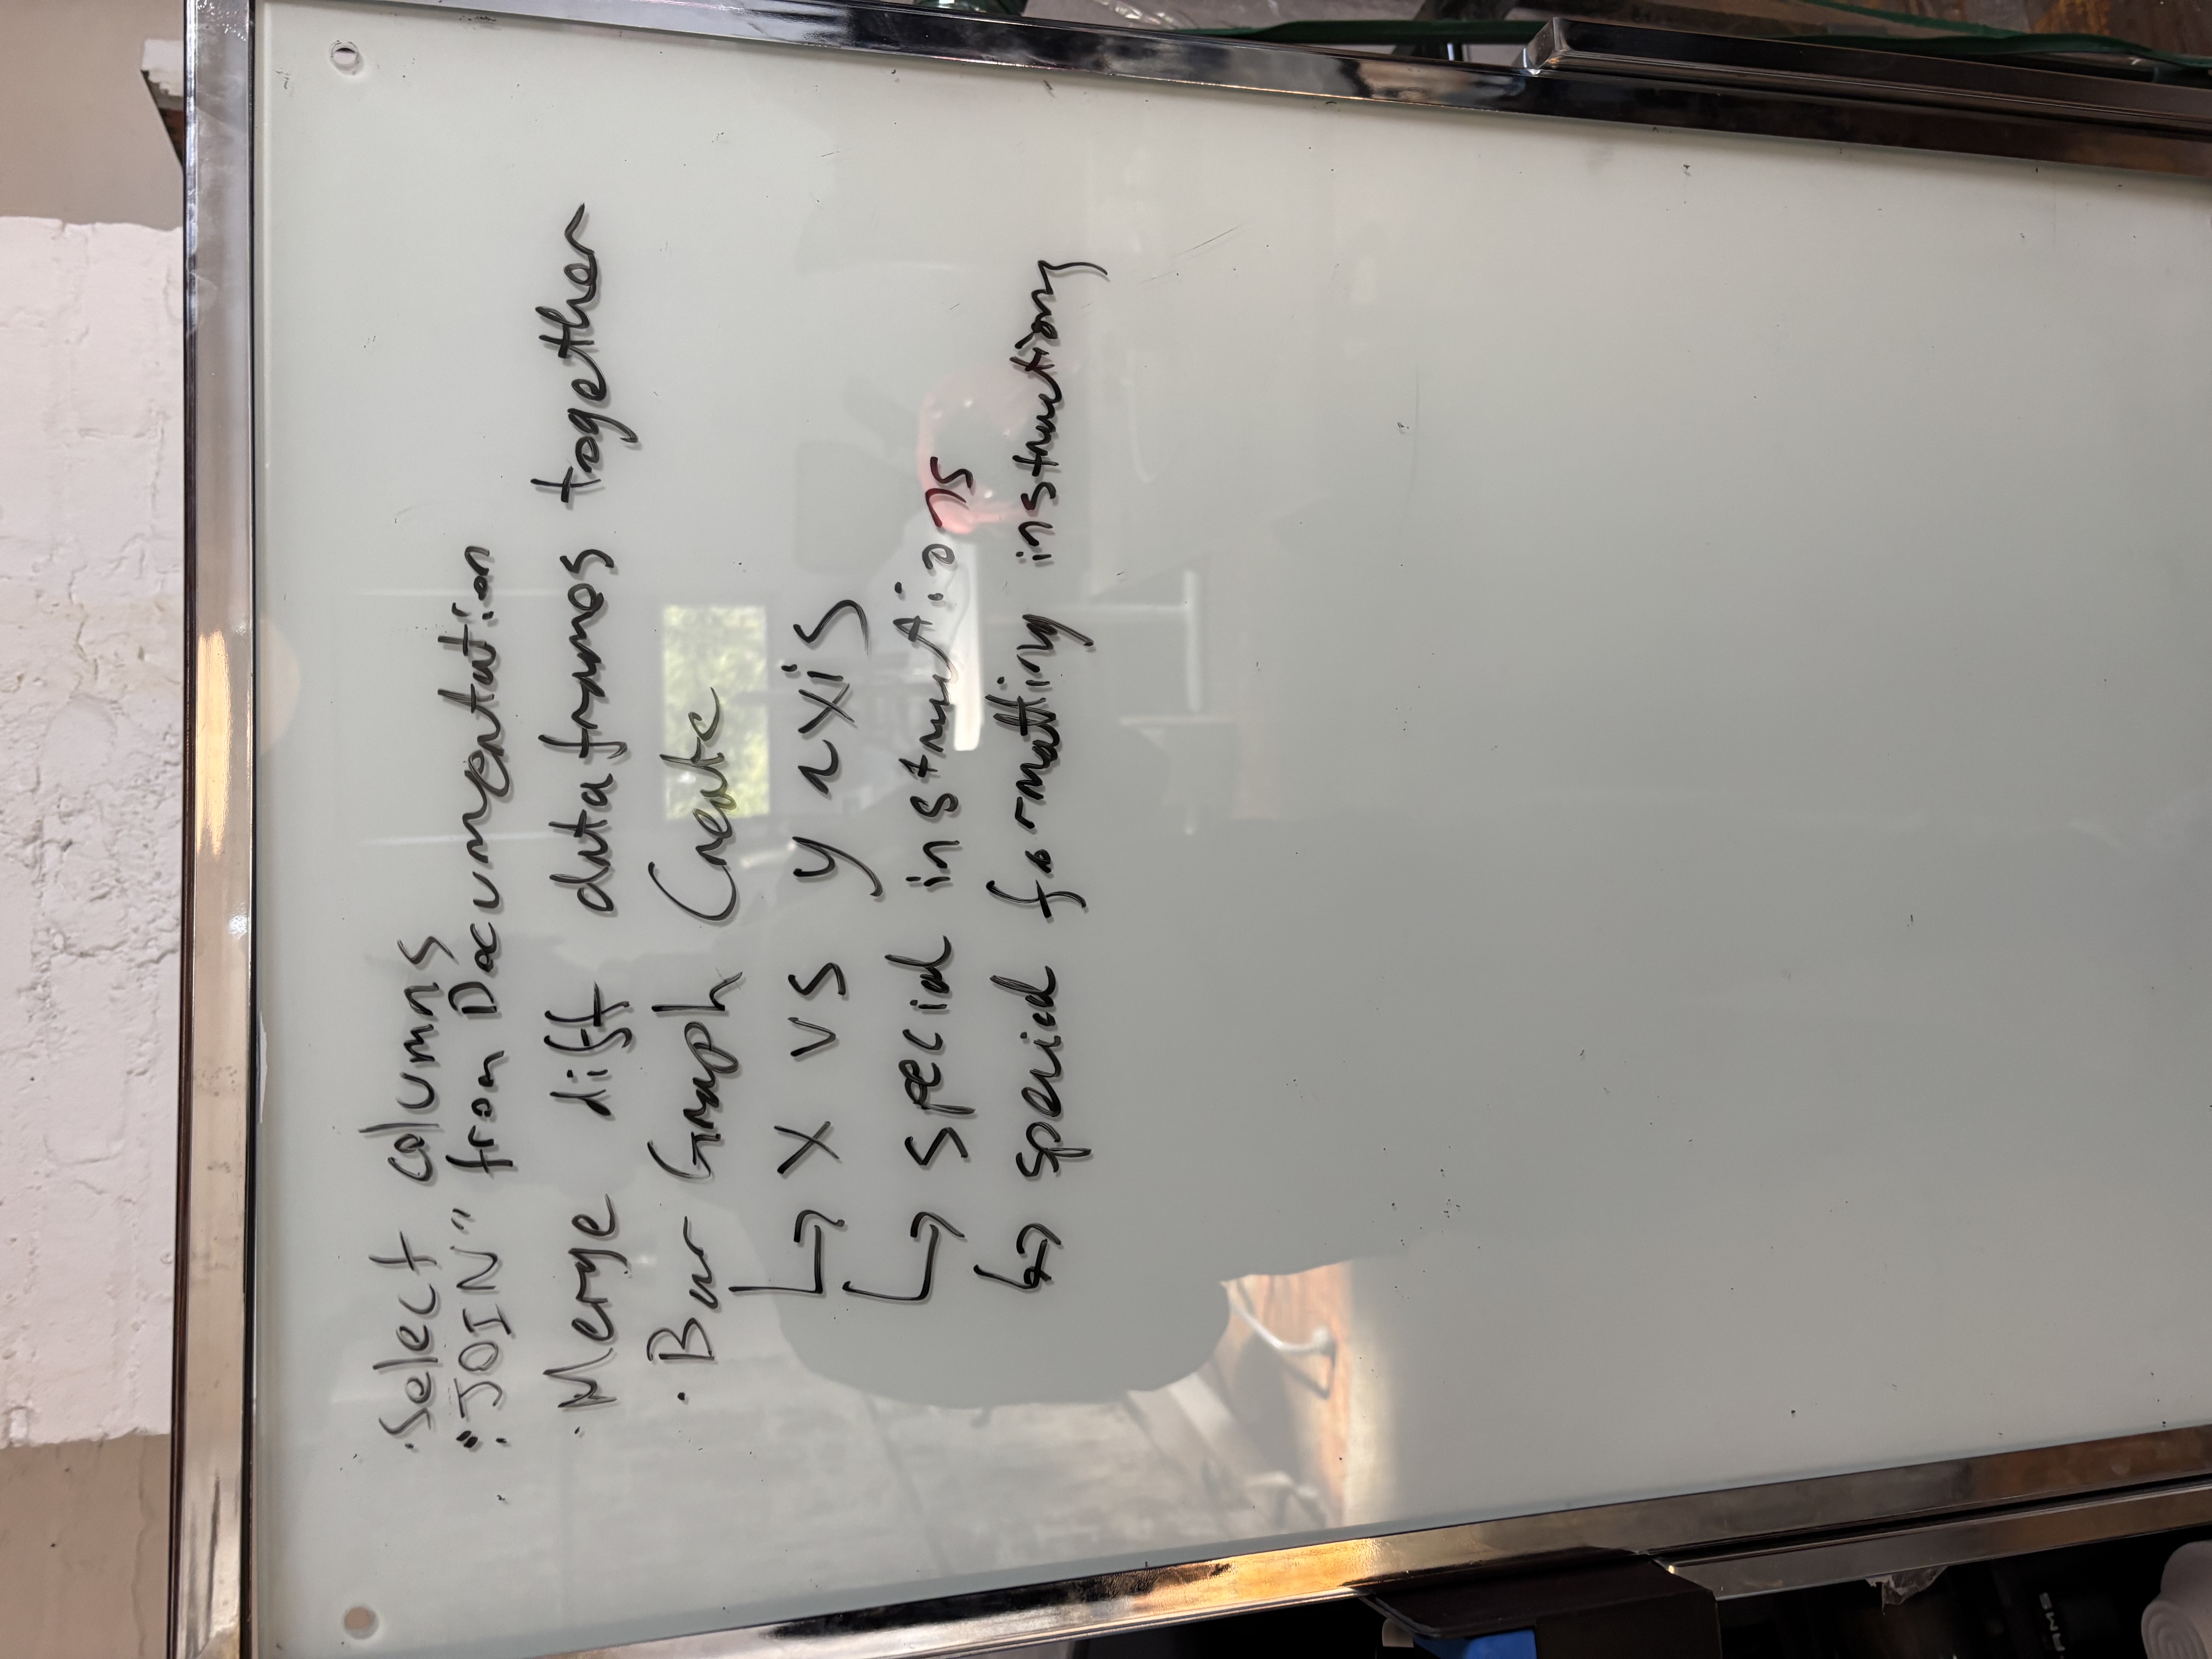 · Select columns
· "JOIN" from Documentation
· Merge diff dataframes together
· Bar Graph Create
↳ X vs y axis
↳ special instructions
↳ special formatting instructions
AMS